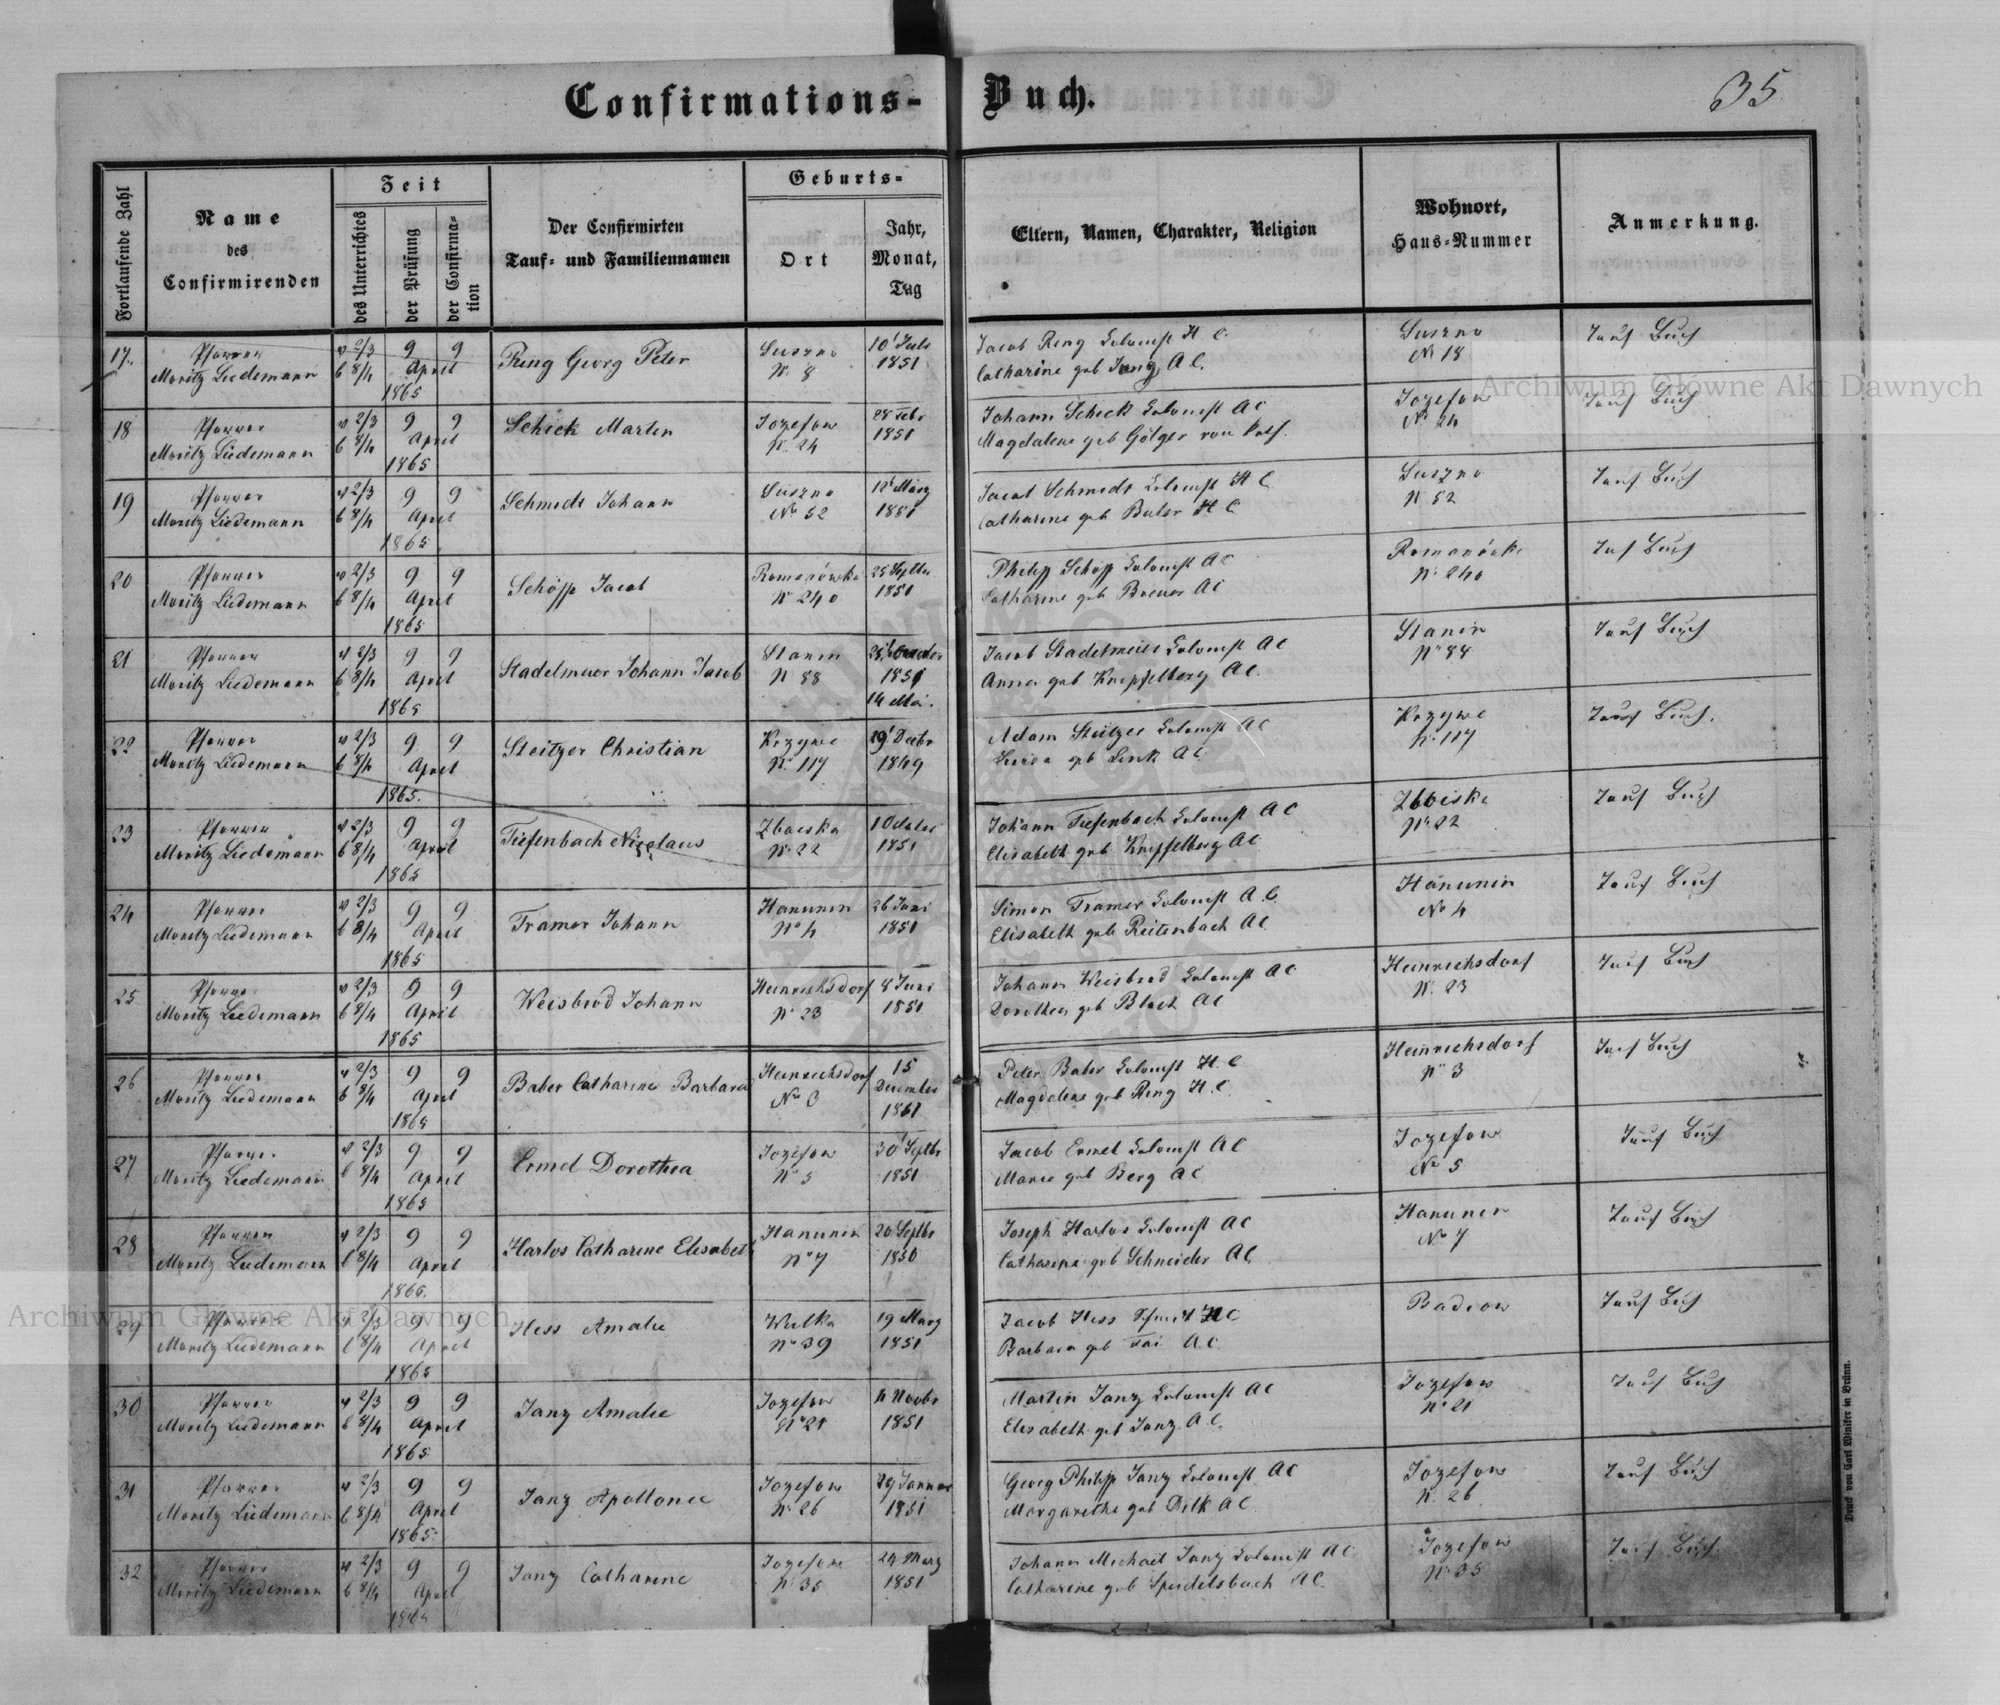 Confirmations-Buch.
35
Fortlaufende Zahl
Name
des
Confirmirenden
Zeit
des Unterrichtes
der Prüfung
der Confirma-
tion
Der Confirmirten
Tauf- und Familiennamen
Geburts-
Ort
Jahr,
Monat,
Tag
Eltern, Namen, Charakter, Religion
Wohnort,
Haus-Nummer
Anmerkung.
17. Pfarrer v 2/3 9 9 Ring Georg Peter Suszno 10' Juli Jacob Ring Colonist H C. Suszno Tauf Buch
Moritz Liedemann b 8/4 April 1865 No 8 1851 Catharine geb Janz A C. No 18
18 Pfarrer v 2/3 9 9 Schick Martin Jozefow 28 Febr Johann Schick Colonist A C Jozefow Tauf Buch
Moritz Liedemann b 8/4 April 1865 No 24 1851 Magdalene geb Gölger No 24
19 Pfarrer v 2/3 9 9 Schmidt Johann Suszno 12' März Jacob Schmidt Colonist H C Suszno Tauf Buch
Moritz Liedemann b 8/4 April 1865 No 52 1851 Catharine geb Baber H C No 52
20 Pfarrer v 2/3 9 9 Schöpp Jacob Romanówka 25 Septbr Philipp Schöpp Colonist A C Romanówka Tauf Buch
Moritz Liedemann b 8/4 April 1865 No 240 1851 Catharine geb A C No 240
21 Pfarrer v 2/3 9 9 Stadelmeier Johann Jacob Stanin Jacob Stadelmeier Colonist A C Stanin Tauf Buch
Moritz Liedemann b 8/4 April 1865 No 88 1851 14 Mai. Anna geb Knipfelberg A C. No 88
22 Pfarrer v 2/3 9 9 Steitzer Christian Krzywe 19' Decbr Adam Steitzer Colonist A C Krzywe Tauf Buch.
Moritz Liedemann b 8/4 April 1865. No 117 1849 geb Link A C. No 117
23 Pfarrer v 2/3 9 9 Tiefenbach Nicolaus Zboiska 1 Johann Tiefenbach Colonist A C Zboiska Tauf Buch
Moritz Liedemann b 8/4 April 1865 No 22 1851 Elisabeth geb Knipfelberg A C No 22
24 Pfarrer v 2/3 9 9 Tramer Johann Hanunin 26 Juni Simon Tramer Colonist A C. Hanunin Tauf Buch
Moritz Liedemann b 8/4 April 1865 No 4 1851 Elisabeth geb Reitenbach A C No 4
25 Pfarrer v 2/3 9 9 Weisbrod Johann Heinrichsdorf 8 Juni Johann Weisbrod Colonist A C Heinrichsdorf Tauf Buch
Moritz Liedemann b 8/4 April 1865 No 23 1851 Dorothea geb A C No 23
26 Pfarrer v 2/3 9 9 Baber Catharine Barbara Heinrichsdorf 15 Peter Baber Colonist H C Heinrichsdorf Tauf Buch
Moritz Liedemann b 8/4 April 1865 No 3 December 1851 Magdalene geb Ring H. C. No 3
27 Pfarrer v 2/3 9 9 Ermel Dorothea Jozefow 30' Septbr Jacob Ermel Colonist A C Jozefow Tauf Buch
Moritz Liedemann b 8/4 April 1865 No 5 1851 Marie geb Berg A C No 5
28 Pfarrer v 2/3 9 9 Harlos Catharine Elisabeth Hanunin 20 Septbr Joseph Harlos Colonist A C Hanunin Tauf Buch
Moritz Liedemann b 8/4 April 1865. No 7 1850 Catharine geb Schneider A C. No 7
29 Pfarrer v 2/3 9 9 Hess Amalie Wulka 19 März Jacob Hess Schmidt H C Radiow Tauf Buch
Moritz Liedemann b 8/4 April 1865 No 39 1851 Barbara geb A C.
30 Pfarrer v 2/3 9 9 Janz Amalie Jozefow 4 Novbr Martin Janz Colonist A C Jozefow Tauf Buch
Moritz Liedemann b 8/4 April 1865 No 21 1851 Elisabeth geb Janz A C. No 21
31 Pfarrer v 2/3 9 9 Janz Apollonie Jozefow 29 Januar Georg Philipp Janz Colonist A C Jozefow Tauf Buch
Moritz Liedemann b 8/4 April 1865. No 26 1851 Margarethe geb A C. No 26
32 Pfarrer v 2/3 9 9 Janz Catharine Jozefow 24 März Johann Michael Janz Colonist A C Jozefow Tauf Buch
Moritz Liedemann b 8/4 April 1865 No 35 1851 Catharine geb Speidelsbach A C. No 35
Druck von Carl Winiker in Brünn.
Archiwum Główne Akt Dawnych
Archiwum Główne Akt Dawnych